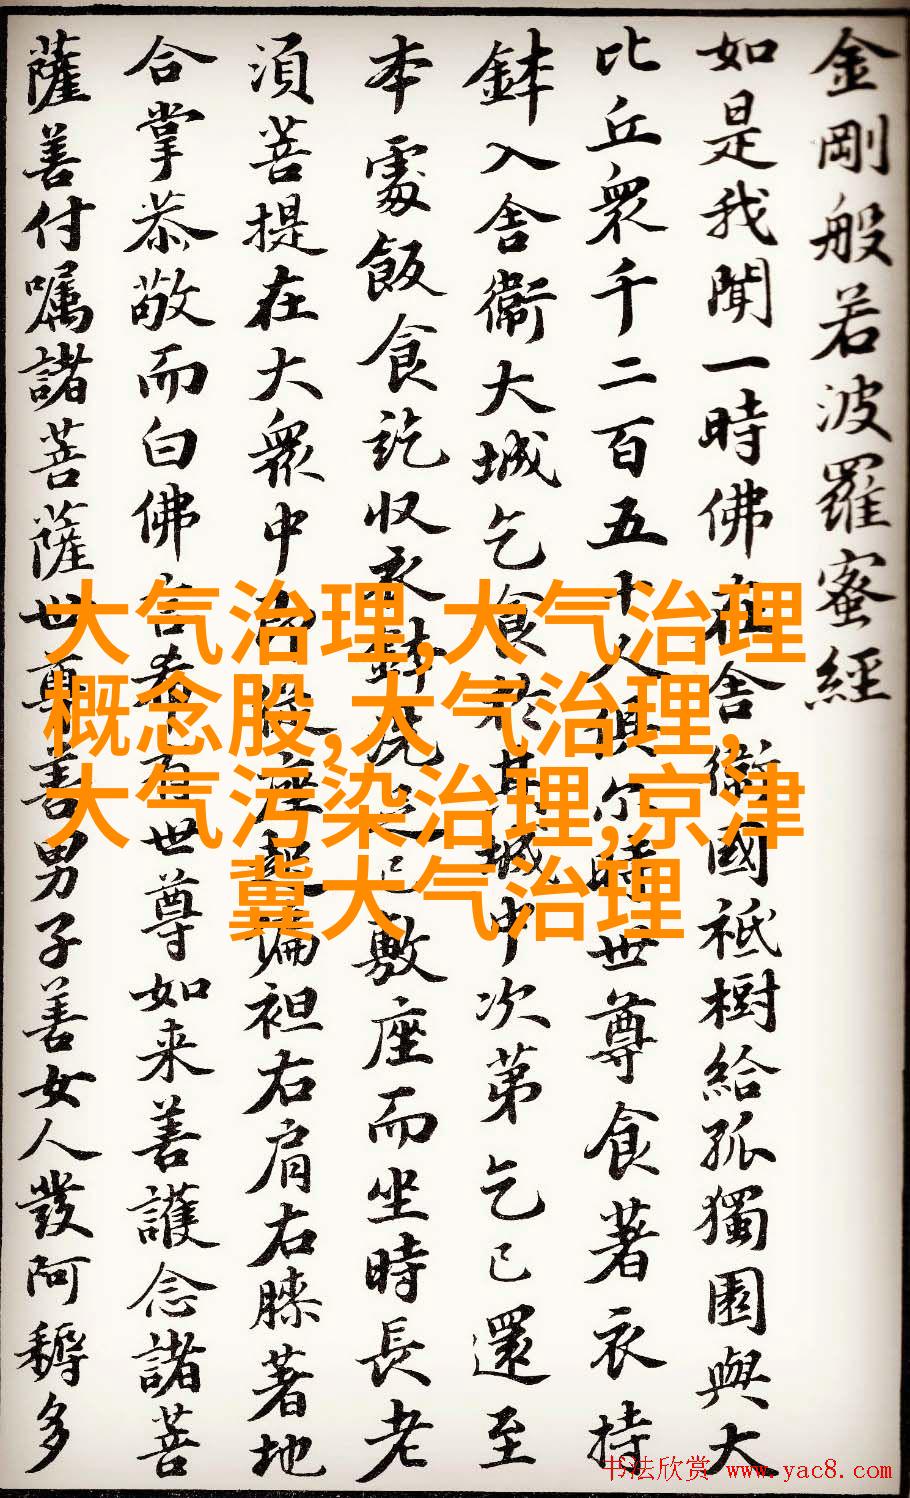 金剛般若波羅蜜經
如是我聞一時佛在舍衛國祇樹給孤獨園與大
比丘衆千二百五十人俱尔時世尊食著衣持
鉢入舍衛大城乞食於其城中次第乞已還至
本處飯食訖収衣鉢洗足已敷座而坐時長老
須菩提在大衆中即從座起偏袒右肩右膝著地
合掌恭敬而白佛言希有世尊如来善護念諸菩
薩善付嘱諸菩薩世尊善男子善女人發阿耨多
大气治理,大气治理
概念股,大气治理,
大气污染治理,京津
冀大气治理
书法欣赏 www.yac8.com